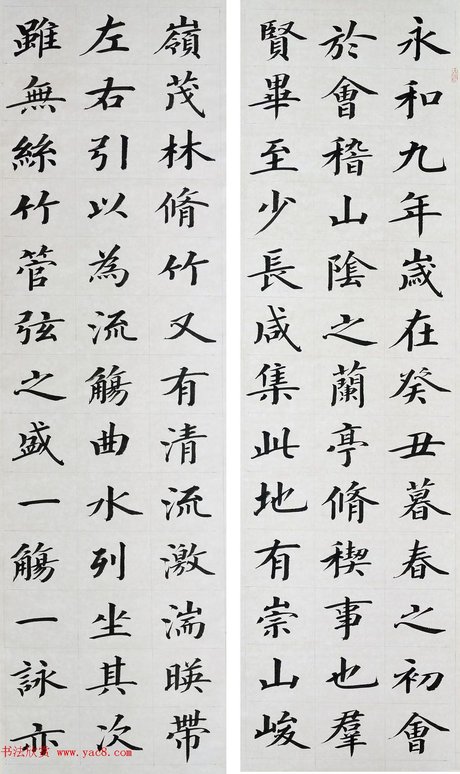 永和九年歲在癸丑暮春之初會
於會稽山陰之蘭亭脩稧事也羣
賢畢至少長咸集此地有崇山峻
嶺茂林脩竹又有清流激湍暎帶
左右引以為流觴曲水列坐其次
雖無絲竹管弦之盛一觴一詠亦
书法欣赏 www.yac8.com